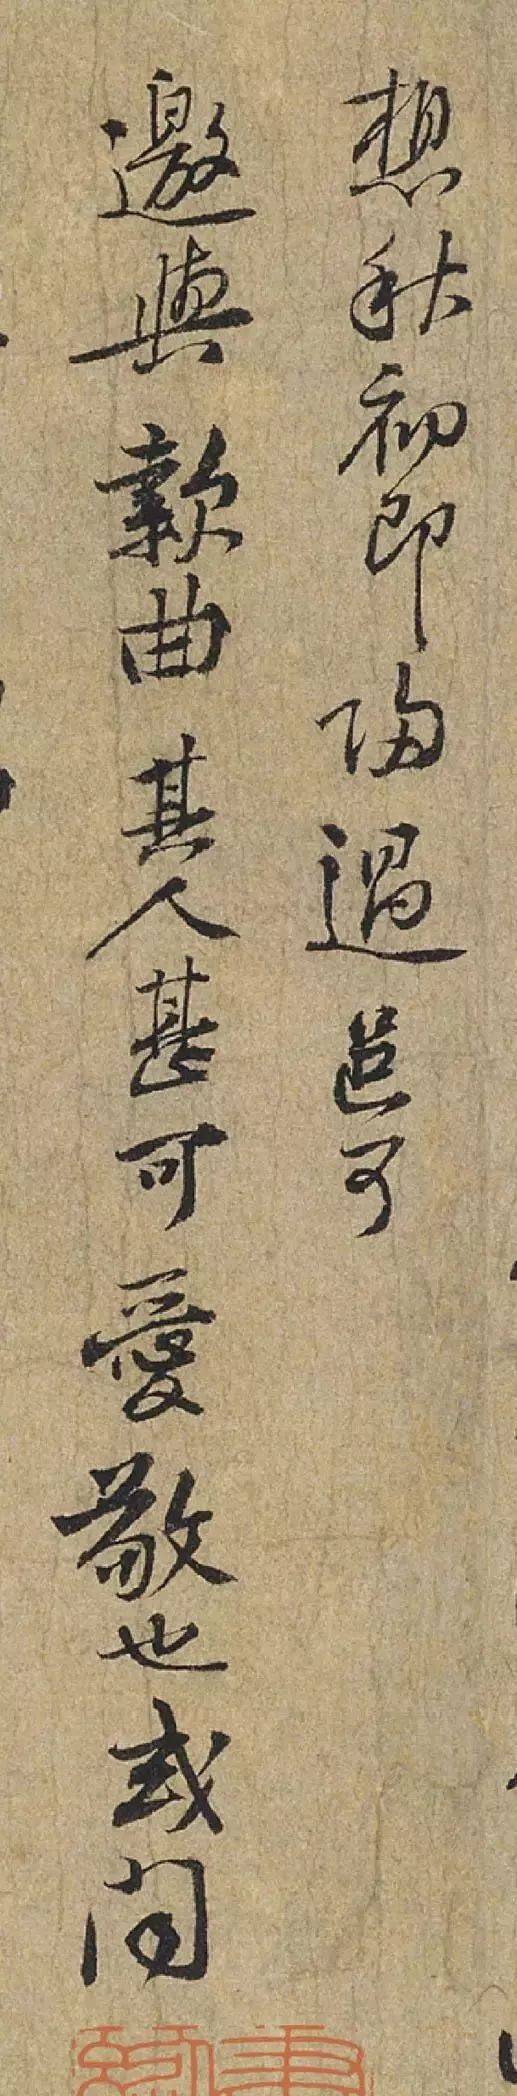 想秋初即歸過邑可
邀與款曲其人甚可愛敬也或聞